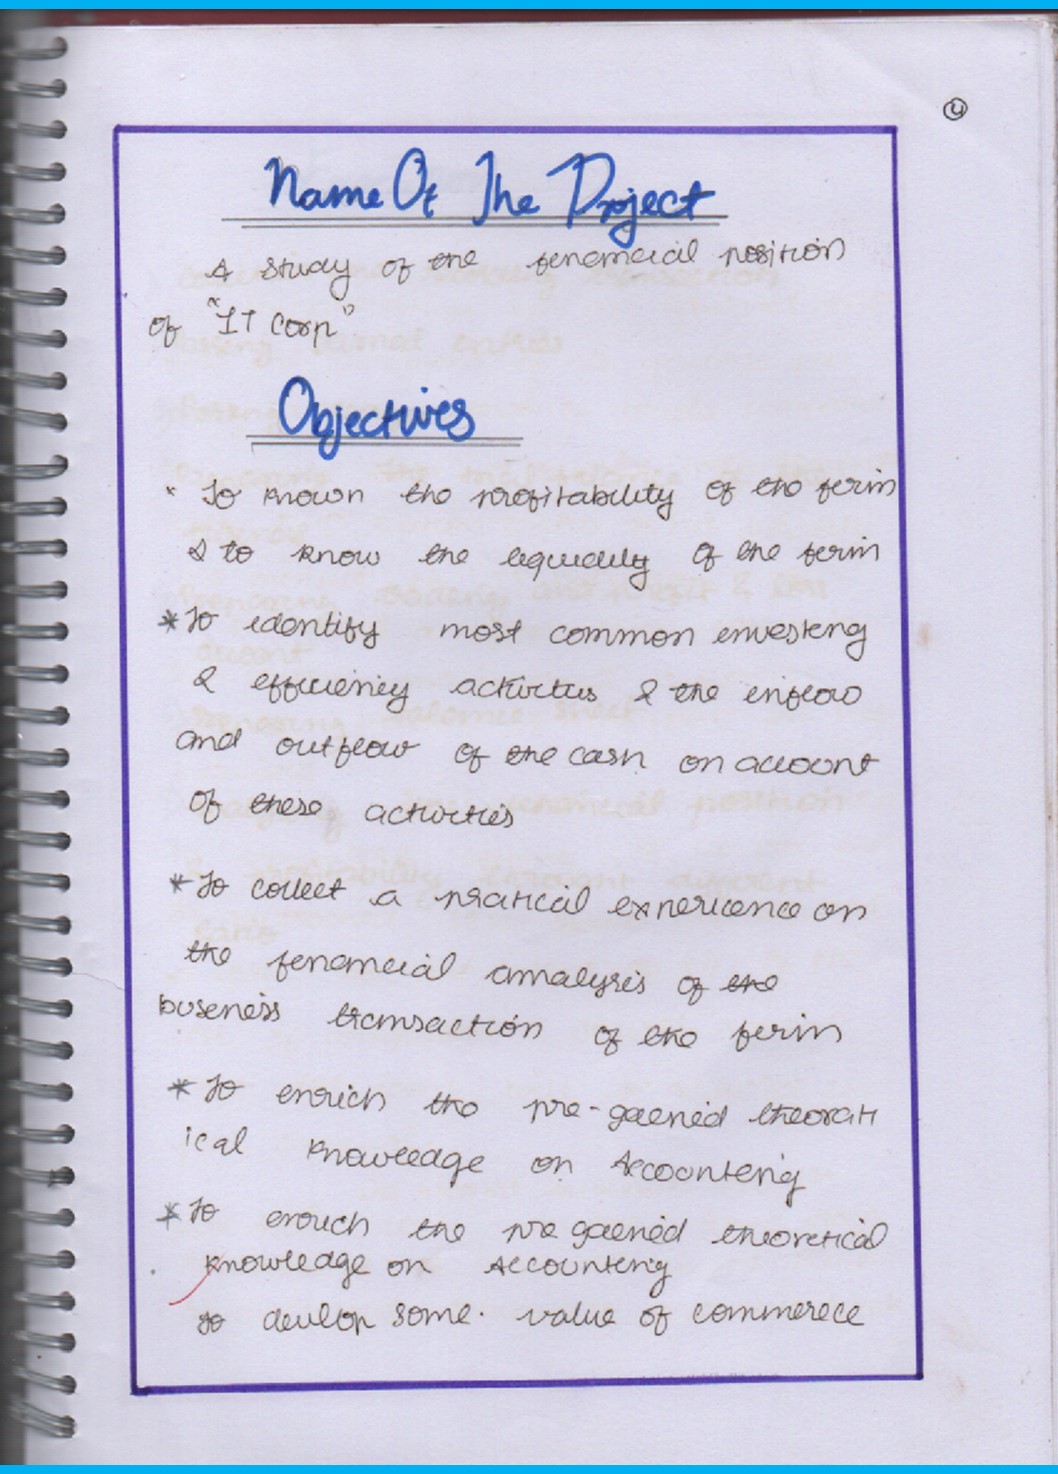 4
Name Of The Project
A study of the fenancial position
of "IT Corp"
Objectives
* To known the profitability of the ferim
& to know the liquidity of the ferim
* To identify most common envesteng
& efficiency activities & the enflow
and outflow of the cash on account
of these activities
* To collect a pratical experience on
the fenancial analysis of the
buseness transaction of the ferim
* To enrich the pre-gaened theorati
ical knowledge on Accounteng
* To enrich the pre gaened theoretical
knowledge on Accounteng
to devlop some. value of commerece